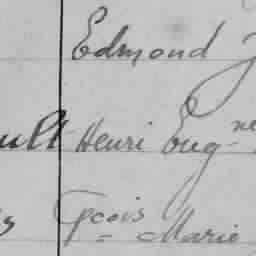 Edmond J
ult Henri Eug-ne
Fcois Marie